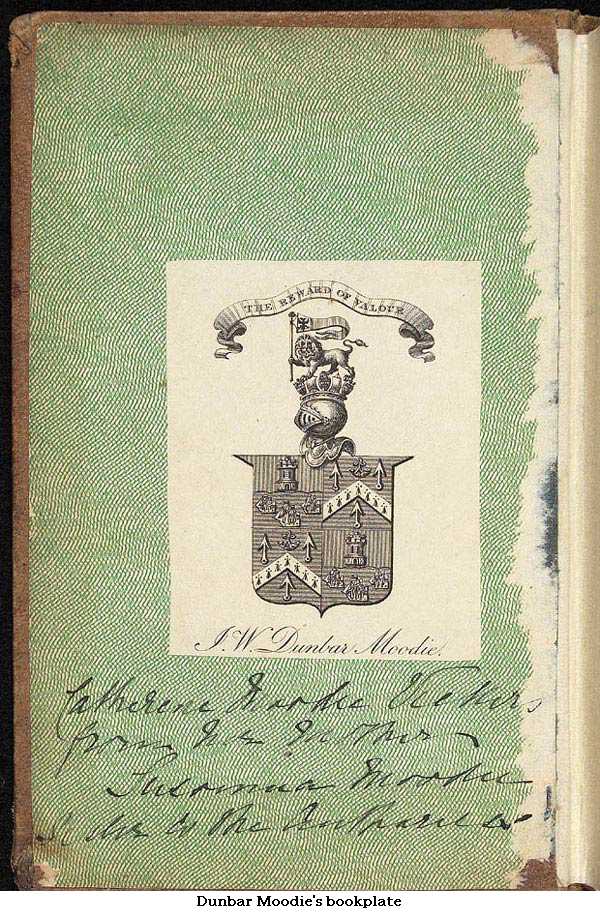 THE REWARD OF VALOUR
J. W. Dunbar Moodie.
Catherine Moodie Vickers
from her Mother –
Susanna Moodie
Sister to the Authoress
Dunbar Moodie's bookplate